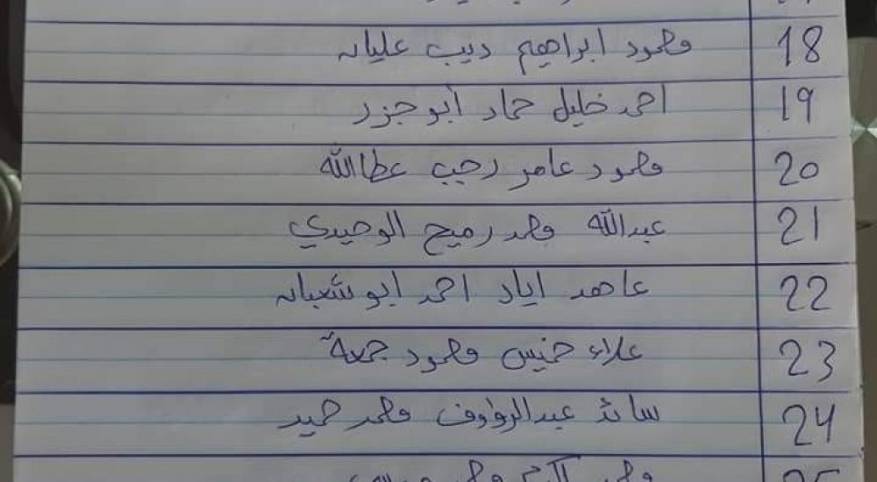 18 محمود ابراهيم ديب عليان
19 احمد خليل حماد أبو جزر
20 محمود عامر رجب عطاالله
21 عبدالله محمد رميح الوحيدي
22 عاهد اياد احمد ابو شعبان
23 علاء خميس محمود جمعة
24 سائد عبدالرؤوف محمد حميد
25